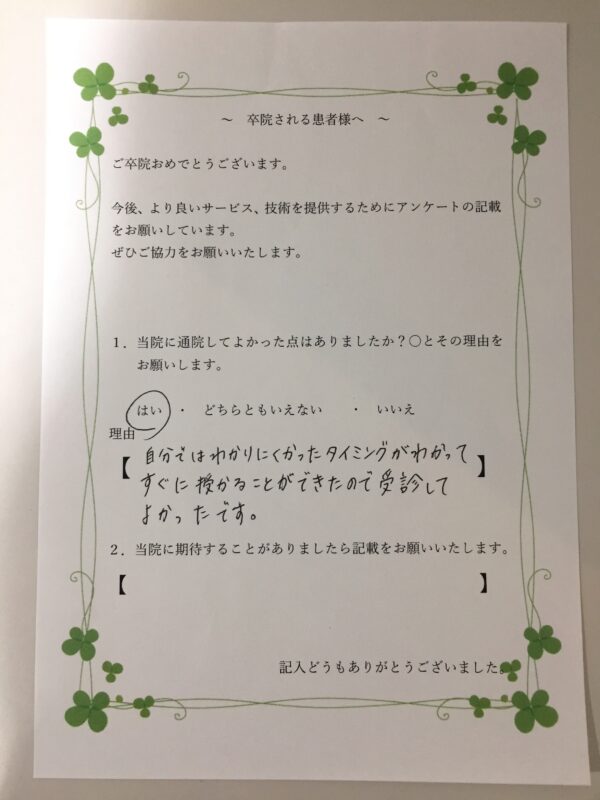 ～　卒院される患者様へ　～
ご卒院おめでとうございます。
今後、より良いサービス、技術を提供するためにアンケートの記載
をお願いしています。
ぜひご協力をお願いいたします。
１．当院に通院してよかった点はありましたか？○とその理由を
お願いします。
はい　・　どちらともいえない　　・　いいえ
理由
【自分ではわかりにくかったタイミングがわかって】
すぐに授かることができたので受診して
よかったです。
２．当院に期待することがありましたら記載をお願いいたします。
【　　　】
記入どうもありがとうございました。